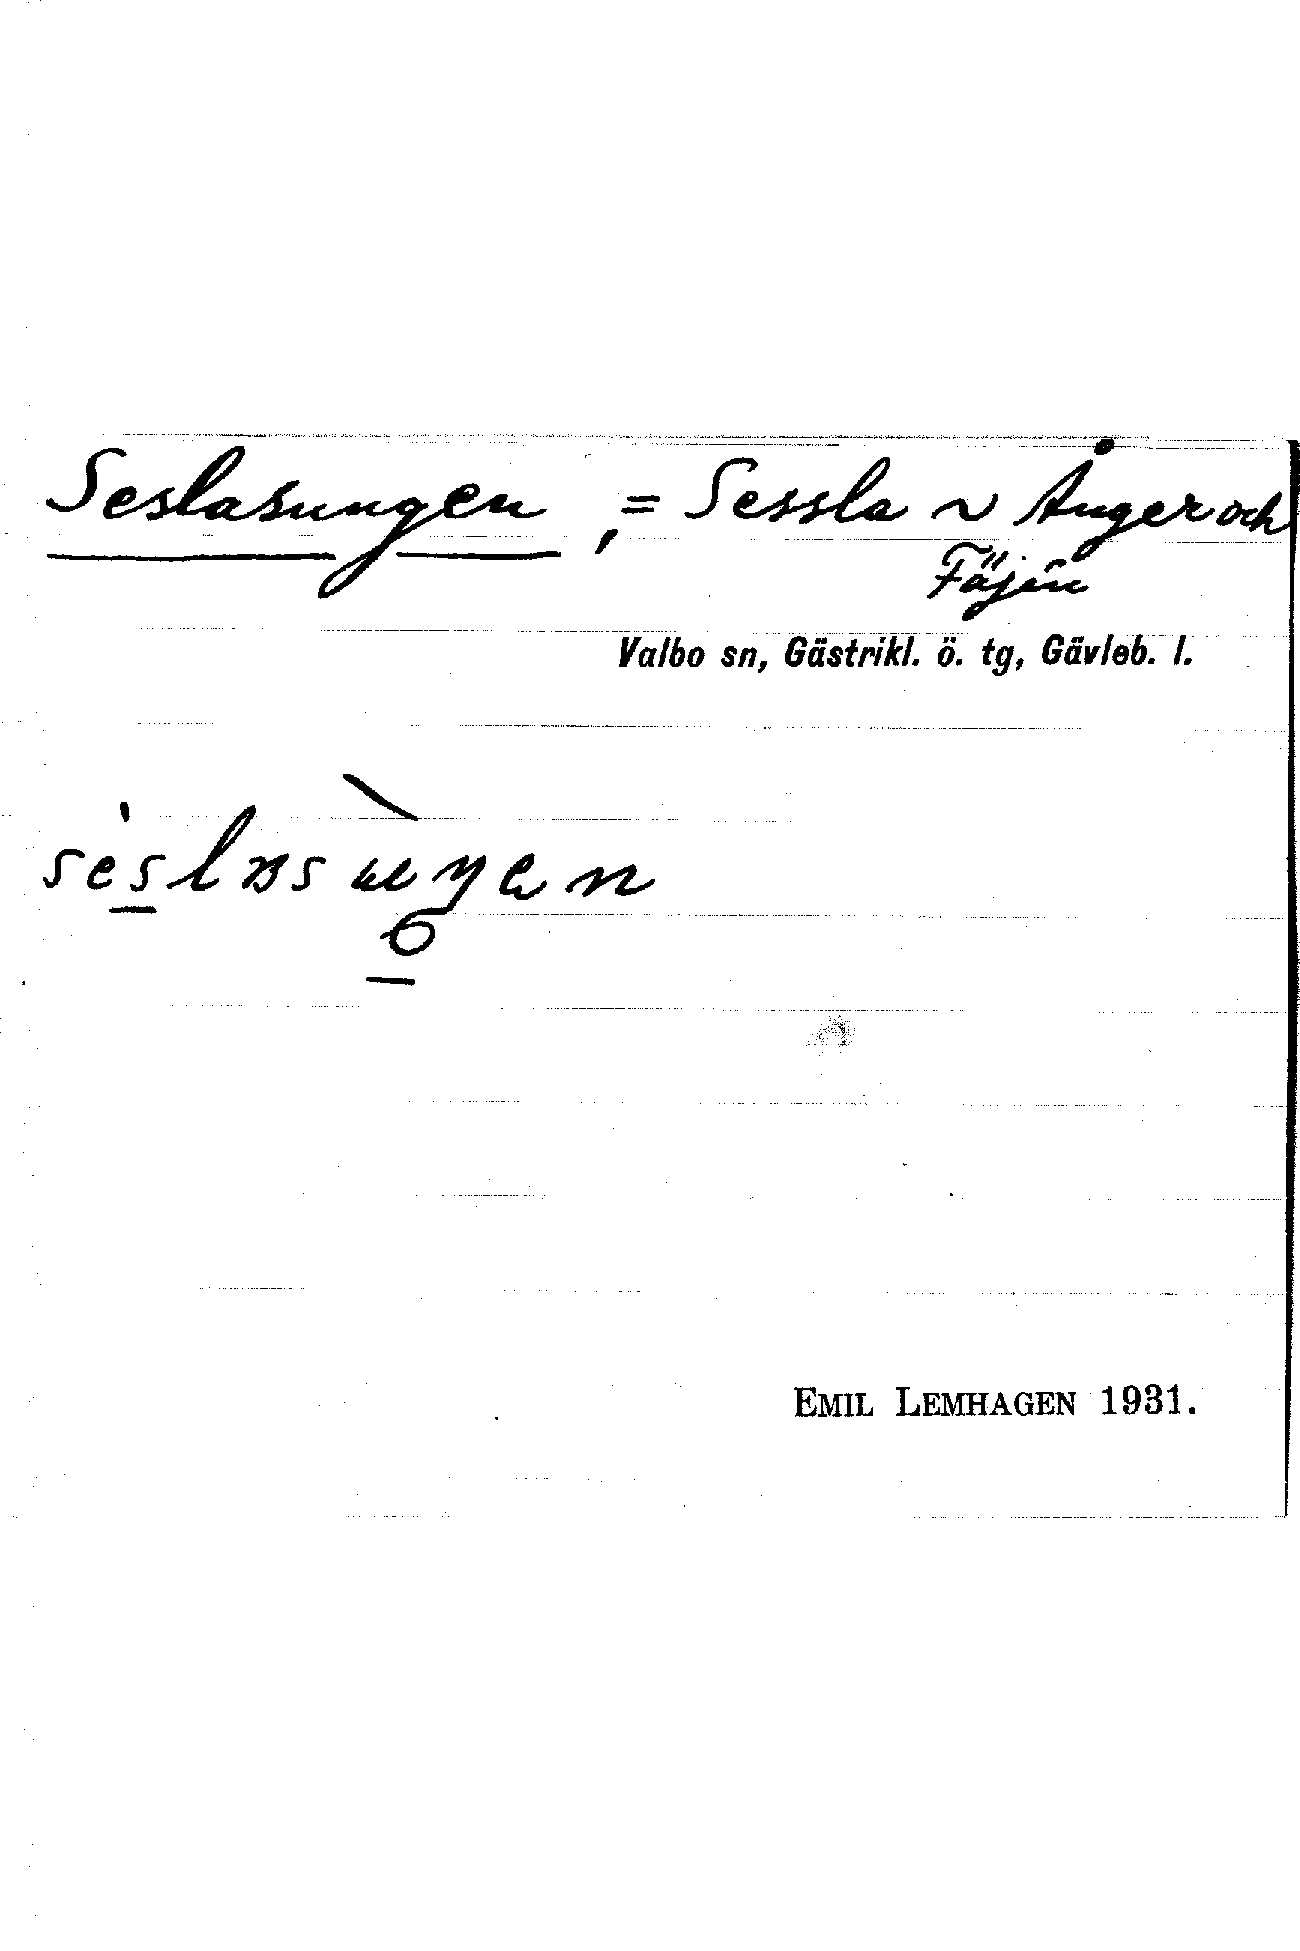 Seslasungen, = Sessla ~ Ånger och
Fäjin
Valbo sn, Gästrikl. ö. tg, Gävleb. l.
EMIL LEMHAGEN 1931.